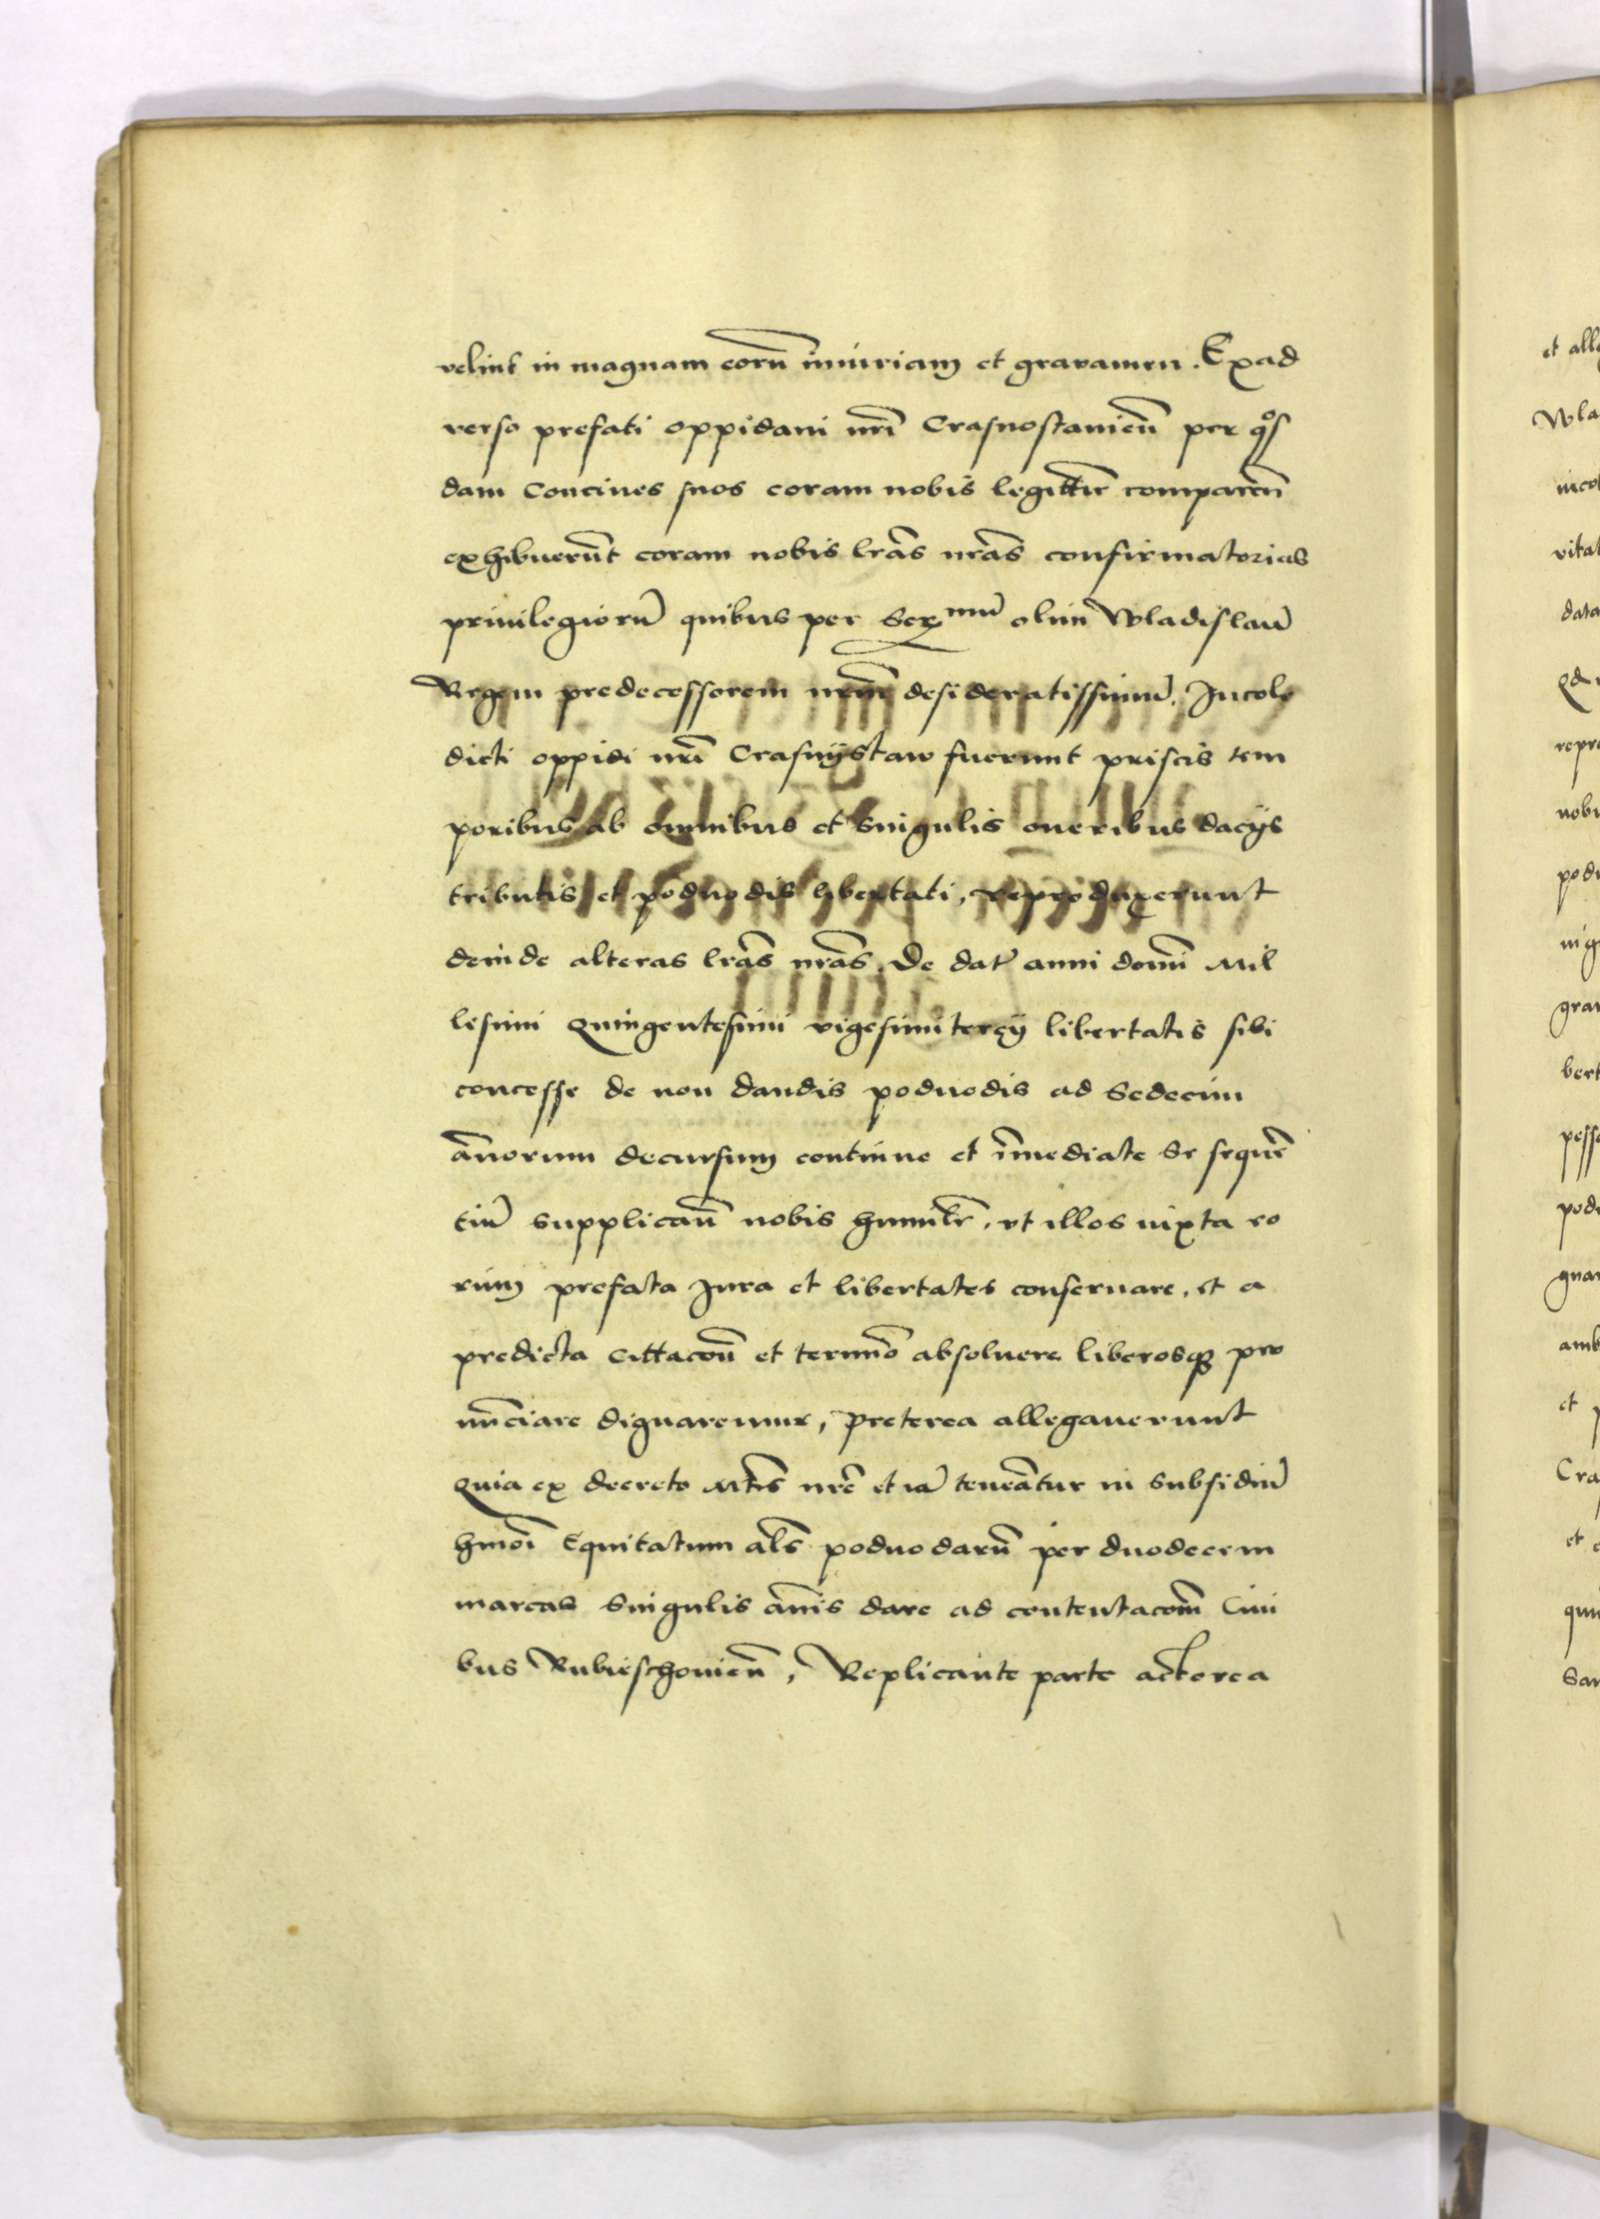 velint in magnam eorū iniuriam et gravamen. Exad
verso prefati oppidani nrī Crasnostavien̄ per qᵒs
dam Concives suos coram nobis legittīe comparen̄
exhibuerūt coram nobis lrās nrās confirmatorias
privilegiorū quibus per Serᵐᵘ̄ olim Wladislaū
Regem predecessorem nrm̄ desideratissimū. Incole
dicti oppidi nrī Crasnystaw fuerunt priscis tem
poribus ab omnibus et singulis oneribus dacijs
tributis et podvodis libertati, Reproduxerunt
deinde alteras lrās nrās. De dat anni domī Mil
lesimi Quingentesimi vigesimitercij libertatis sibi
concesse de non dandis podvodis ad Sedecim
ānorum decursum continue et īmediate Se sequē
tiū supplicān nobis humilr̄. vt illos iuxta eo
rum prefata Iura et libertates conservare, et a
predicta Cittacōn et termīo absolvere liberosq pro
nūciare dignaremur, preterea allegaverunt
Quia ex decreto Mtīs nrē etiā teneātur in subsidiū
hmōi Equitatum als̄ podvodarū per duodecem
marcas Singulis ānis dare ad contentacōm Civi
bus Rubieschovien̄, Replicante parte actorea